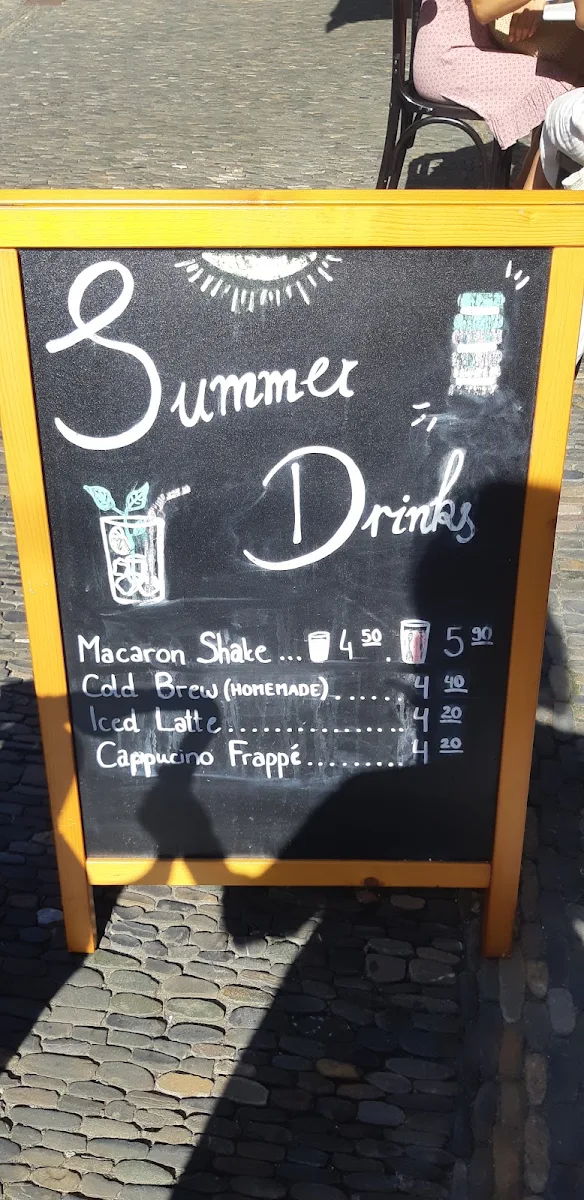 Summer
Drinks
Macaron Shake ... 4 50 . 5 90
Cold Brew (HOMEMADE) ...... 4 40
Iced Latte ................. 4 20
Cappucino Frappé ......... 4 20